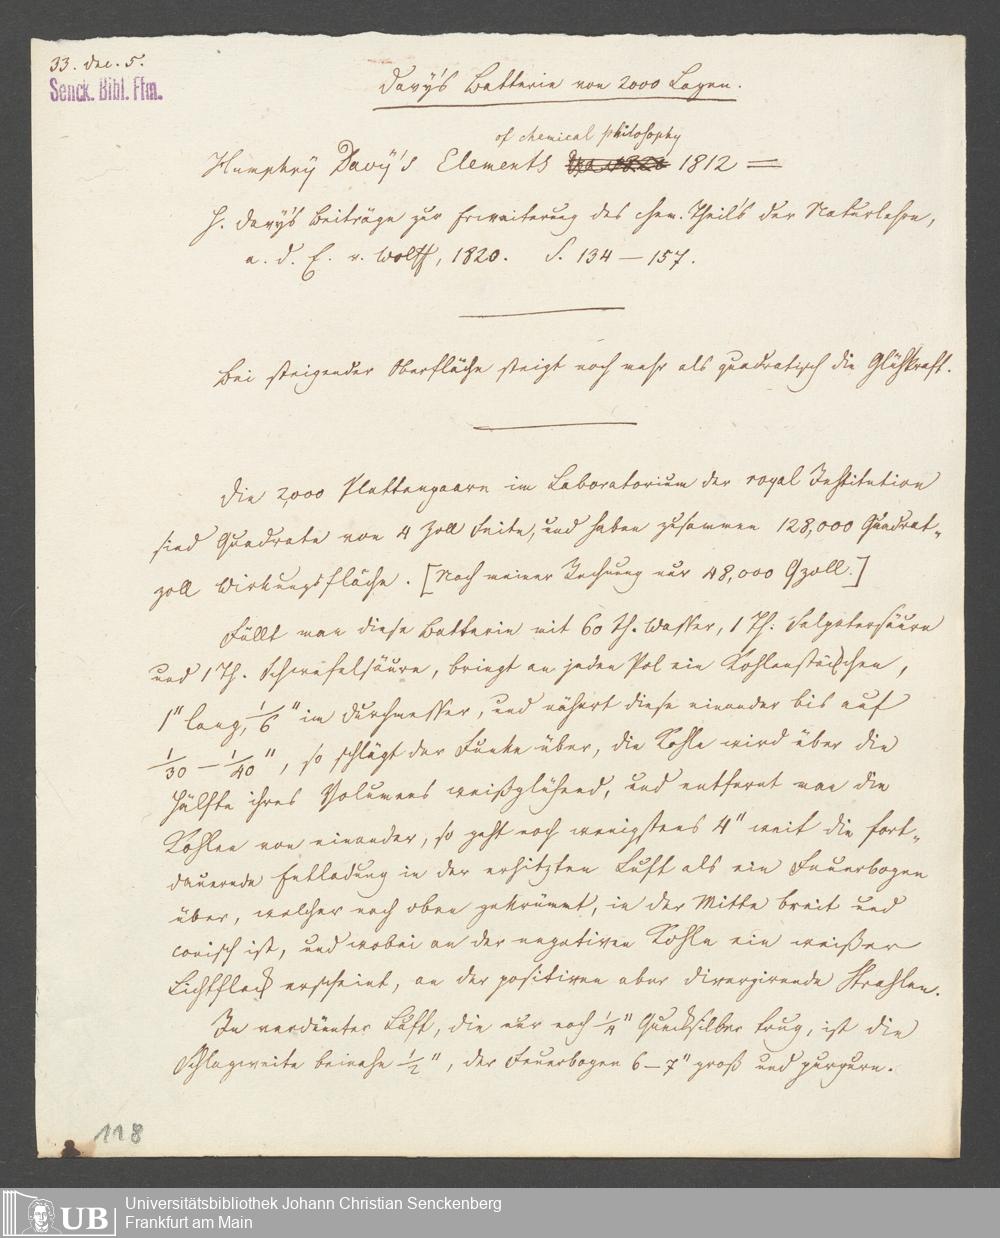 33. Dec. 5.
Senck. Bibl. Ffm.
Davy's Batterie von 2000 Lagen.
of chemical philosophy
Humphry Davy's Elements 1812 =
H. Davy's Beiträge zur Erweiterung des chem. Theils der Naturlehre,
a. d. E. v. Wolff, 1820. S. 134 — 157.
Bei steigender Oberfläche steigt noch mehr als quadratisch die Glühkraft.
Die 2,000 Plattenpaare im Laboratorium der royal Institution
sind Quadrate von 4 Zoll Seite, und haben zusammen 128,000 Quadrat-
zoll Wirkungsfläche. [Nach meiner Rechnung nur 48,000 Qzoll.]
Füllt man diese Batterie mit 60 Th. Wasser, 1 Th. Salpetersäure
und 1 Th. Schwefelsäure, bringt an jeden Pol ein Kohlenstückchen,
1" lang, 1/6" im Durchmesser, und nähert diese einander bis auf
1/30 — 1/40", so schlägt der Funke über, die Kohle wird über die
Hälfte ihres Volumens weißglühend, und entfernt man die
Kohlen von einander, so geht noch wenigstens 4" weit die fort-
dauernde Entladung in der erhitzten Luft als ein Feuerbogen
über, welcher nach oben gekrümmt, in der Mitte breit und
conisch ist, und wobei an der negativen Kohle ein weißer
Lichtfleck erscheint, an der positiven aber divergirende Strahlen.
In verdünnter Luft, die nur noch 1/4" Quecksilber trug, ist die
Schlagweite beinahe 1/2", der Feuerbogen 6—7" groß und purpurn.
118
UB
Universitätsbibliothek Johann Christian Senckenberg
Frankfurt am Main